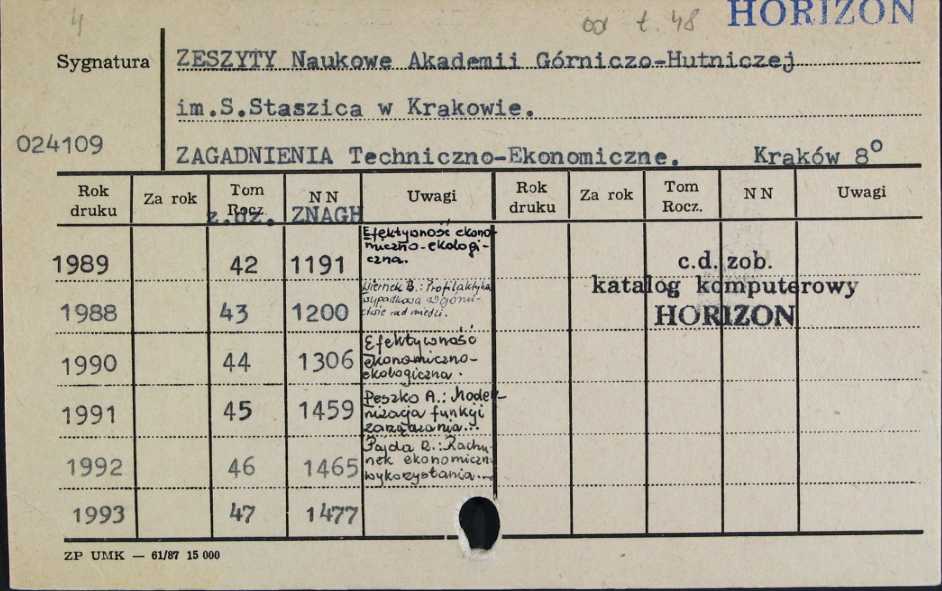 4
od t. 48 HORIZON
Sygnatura ZESZYTY Naukowe Akademii Górniczo-Hutniczej
im.S.Staszica w Krakowie.
024109
ZAGADNIENIA Techniczno-Ekonomiczne. Kraków 8°
Rok druku Za rok Tom Rocz. NN Uwagi Rok druku Za rok Tom Rocz. NN Uwagi
z.dz. ZNAGH
Efektywność ekono-
miczno-ekologi-
czna.
1989 42 1191
c.d. zob.
katalog komputerowy
HORIZON
B.: Profilaktyka
wypadkowa w górni-
ctwie rud miedzi.
1988 43 1200
Efektywność
ekonomiczno-
ekologiczna.
1990 44 1306
Peszko A.: Moder-
nizacja funkcji
zarządzania...
1991 45 1459
Pajda R.: Rachu-
nek ekonomiczn.
wykorzystania...
1992 46 1465
1993 47 1477
ZP UMK — 61/87 15 000